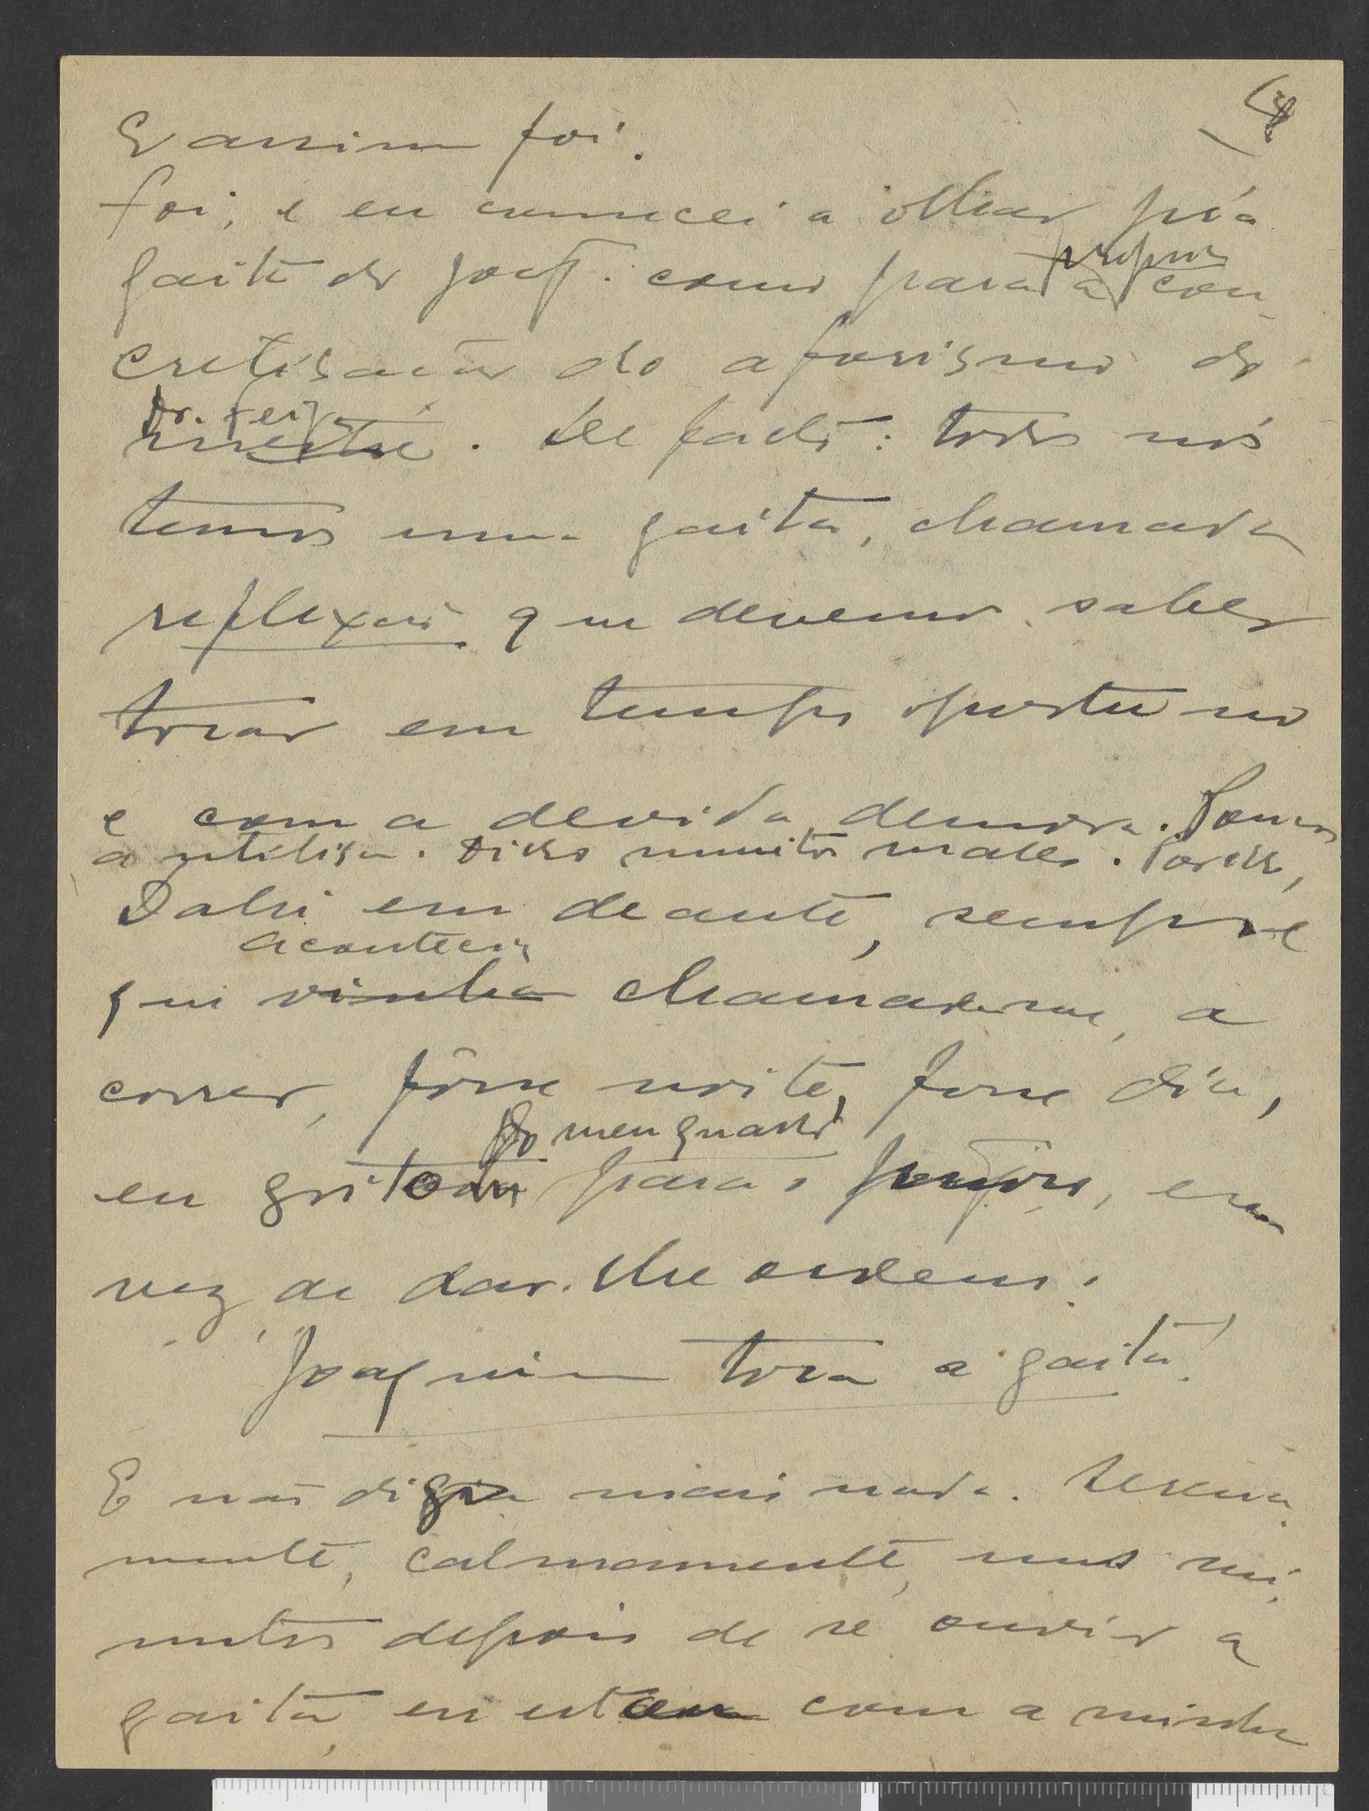 E assim foi.
Foi, e eu comecei a olhar p'ra
gaita do Joaq. como para a propria con-
cretisação do aforismo do
Dr. mestre. De facto: todos nós
temos uma gaita, chamada
reflexão que devemos saber
tocar em tempo oportuno
e com a devida demora. Poucos
a utilisam. Disso muitos males. Por isso,
Dahi em deante, sempre
acontecia
que vinha chamar-me, a
correr, fôsse noite, fosse dia,
do meu quarto
eu gritava para o, em
vez de dar-lhe ordens:
Joaquim toca a gaita!
E não dizia mais nada. Serena-
mente, calmamente, uns mi-
nutos depois de se ouvir a
gaita, eu estava com a minha